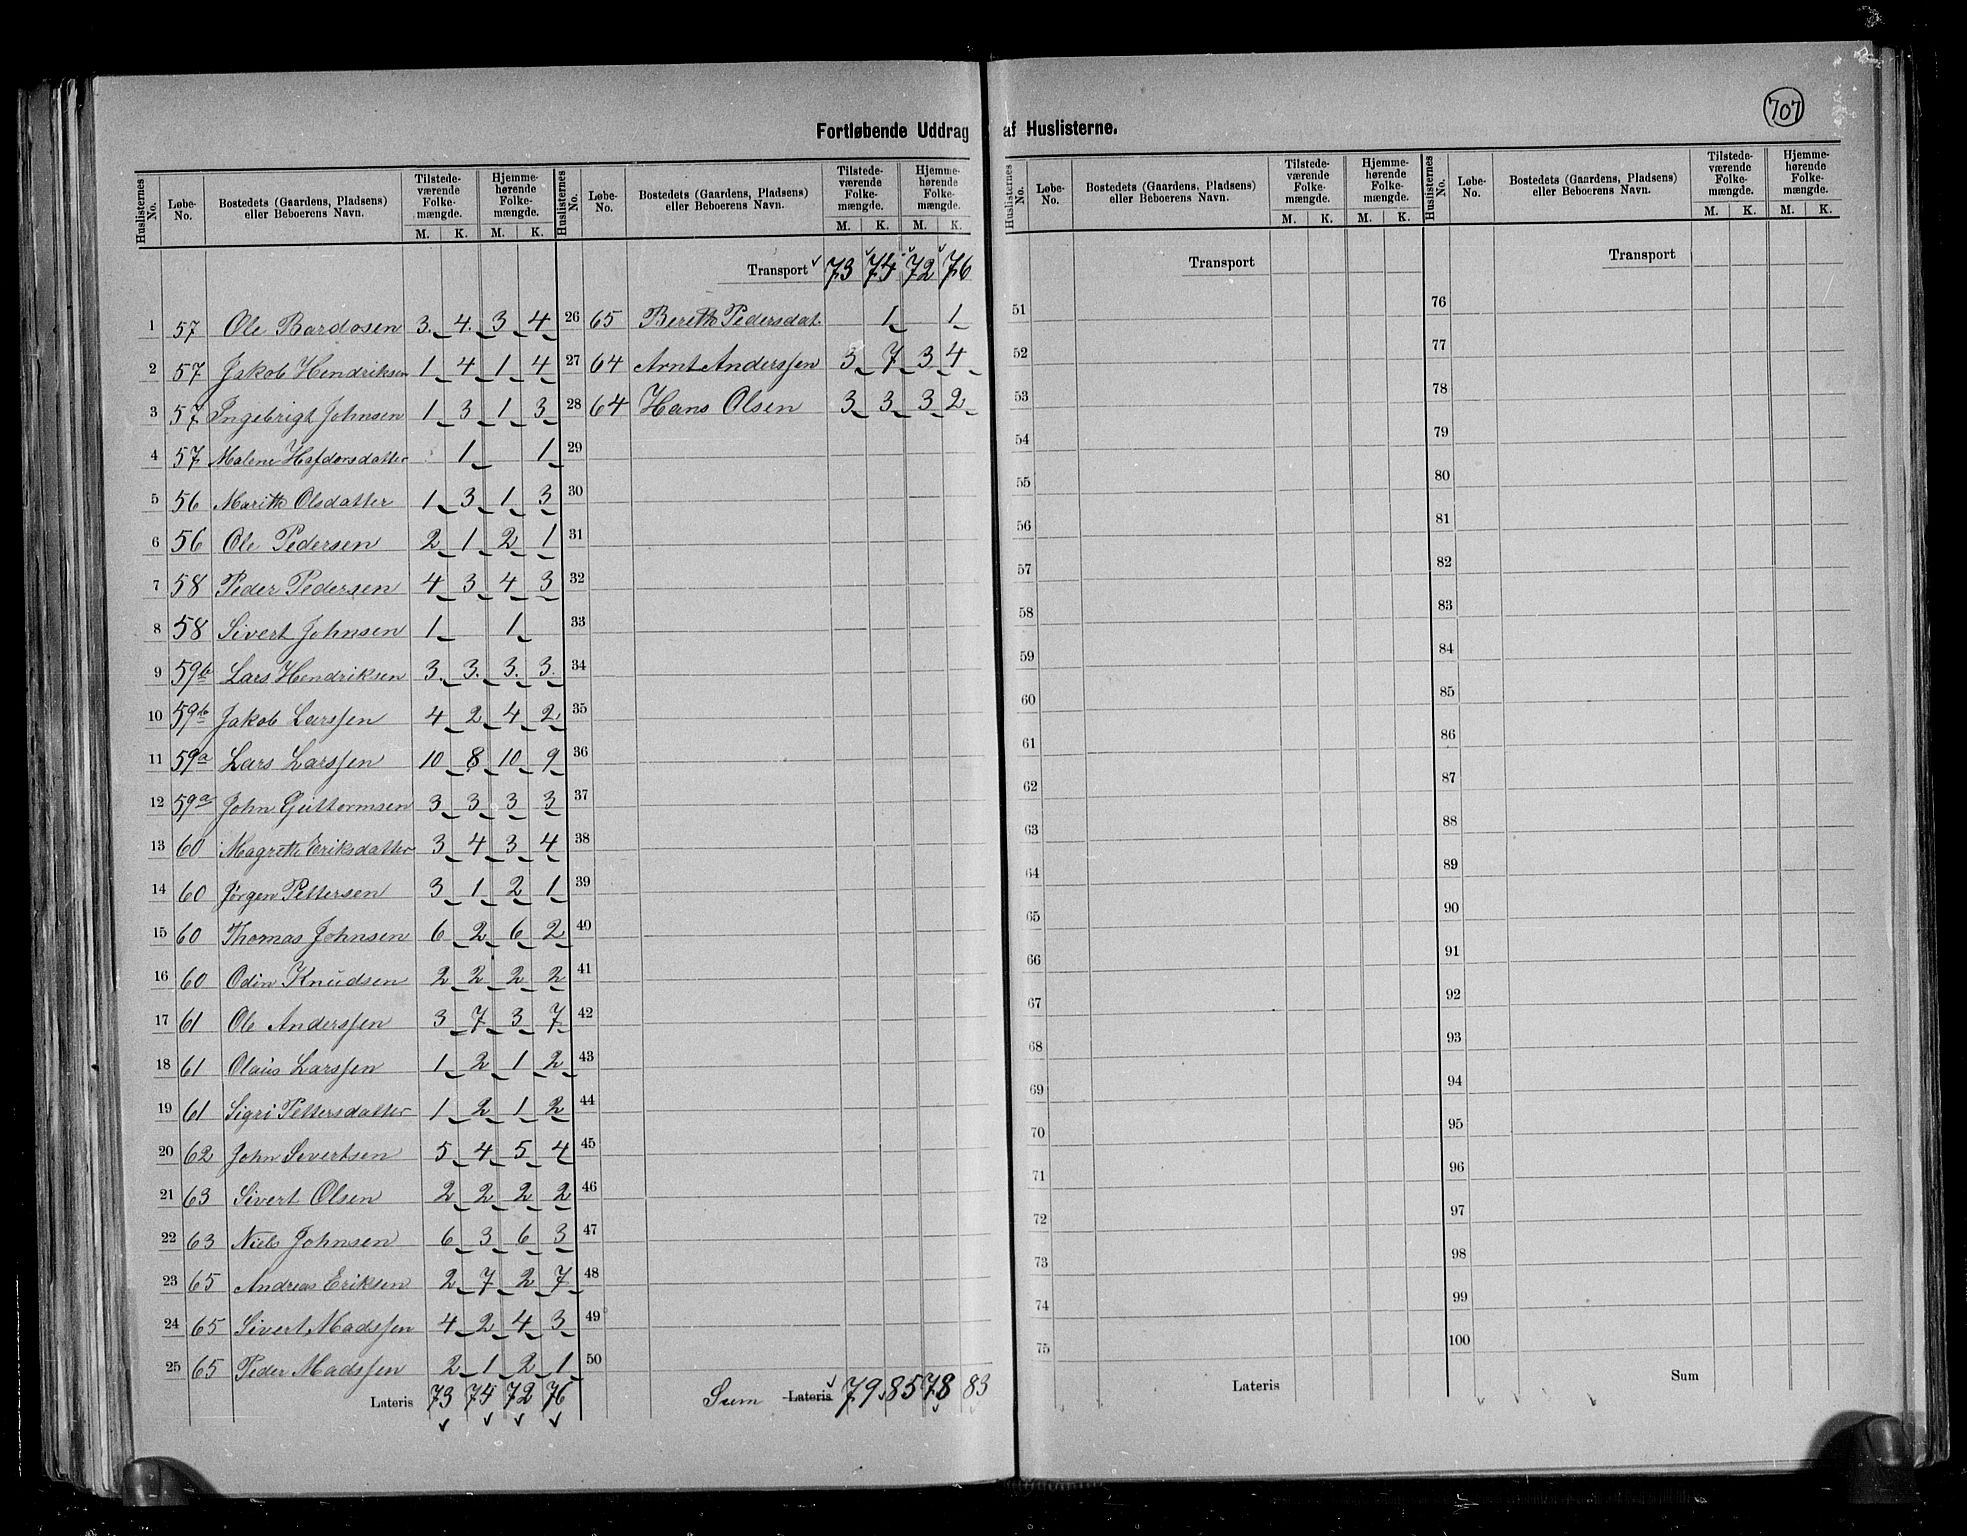 707
Fortløbende Uddrag af Huslisterne.
Huslisternes No. Løbe-No. Bostedets (Gaardens, Pladsens) eller Beboerens Navn. Tilstedeværende Folkemængde. M. K. Hjemmehørende Folkemængde. M. K.
1 57 Ole Bardosen 3 4 3 4
2 57 Jakob Hendriksen 1 4 1 4
3 57 Ingebrigt Johnsen 1 3 1 3
4 57 Malene Hafdorsdatter 1 1
5 56 Marith Olsdatter 1 3 1 3
6 56 Ole Pedersen 2 1 2 1
7 58 Peder Pedersen 4 3 4 3
8 58 Sivert Johnsen 1 1
9 59b Lars Hendriksen 3 3 3 3
10 59b Jakob Larssen 4 2 4 2
11 59a Lars Larssen 10 8 10 9
12 59a John Guttormsen 3 3 3 3
13 60 Magreth Eriksdatter 3 4 3 4
14 60 Jørgen Pettersen 3 1 2 1
15 60 Thomas Johnsen 6 2 6 2
16 60 Odin Knudsen 2 2 2 2
17 61 Ole Anderssen 3 7 3 7
18 61 Olaus Larssen 1 2 1 2
19 61 Sigri Pettersdatter 1 2 1 2
20 62 John Sivertsen 5 4 5 4
21 63 Sivert Olsen 2 2 2 2
22 63 Niels Johnsen 6 3 6 3
23 65 Andreas Eriksen 2 7 2 7
24 65 Sivert Madssen 4 2 4 3
25 65 Peder Madssen 2 1 2 1
Lateris 73 74 72 76
Huslisternes No. Løbe-No. Bostedets (Gaardens, Pladsens) eller Beboerens Navn. Tilstedeværende Folkemængde. M. K. Hjemmehørende Folkemængde. M. K.
Transport 73 74 72 76
26 65 Bereth Pedersdat. 1 1
27 64 Arnt Anderssen 3 7 3 4
28 64 Hans Olsen 3 3 3 2
29
30
31
32
33
34
35
36
37
38
39
40
41
42
43
44
45
46
47
48
49
50
Sum Lateris 79 85 78 83
Huslisternes No. Løbe-No. Bostedets (Gaardens, Pladsens) eller Beboerens Navn. Tilstedeværende Folkemængde. M. K. Hjemmehørende Folkemængde. M. K.
Transport
51
52
53
54
55
56
57
58
59
60
61
62
63
64
65
66
67
68
69
70
71
72
73
74
75
Lateris
Huslisternes No. Løbe-No. Bostedets (Gaardens, Pladsens) eller Beboerens Navn. Tilstedeværende Folkemængde. M. K. Hjemmehørende Folkemængde. M. K.
Transport
76
77
78
79
80
81
82
83
84
85
86
87
88
89
90
91
92
93
94
95
96
97
98
99
100
Sum